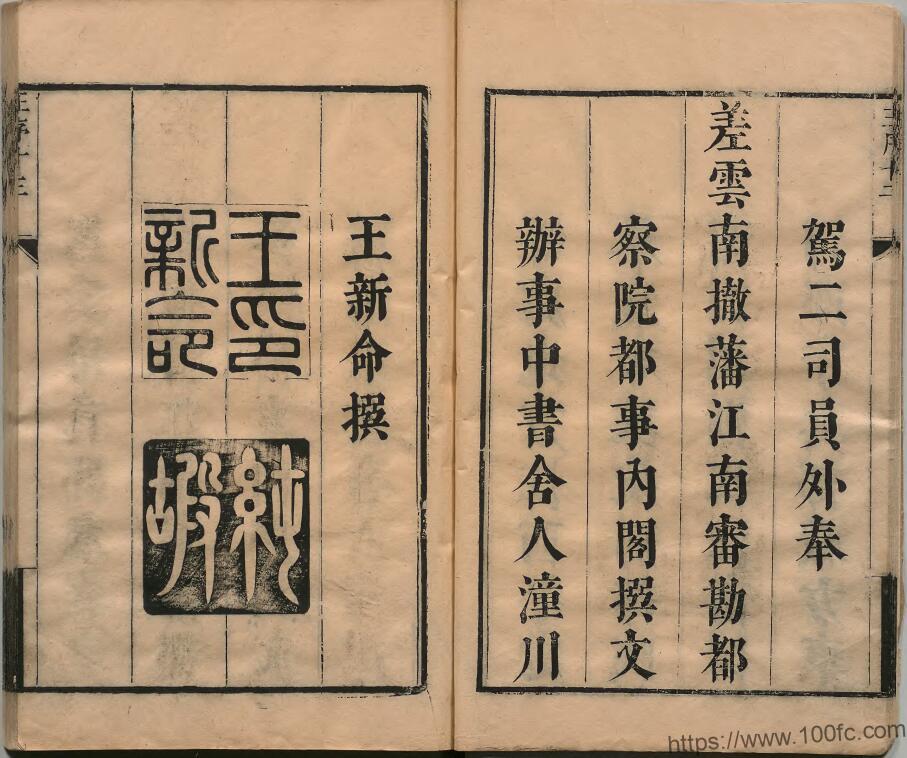 駕二司員外奉
差雲南撤藩江南審勘都
察院都事內閣撰文
辦事中書舍人潼川
王新命撰
王印
新命
純
嘏
https://www.100fc.com